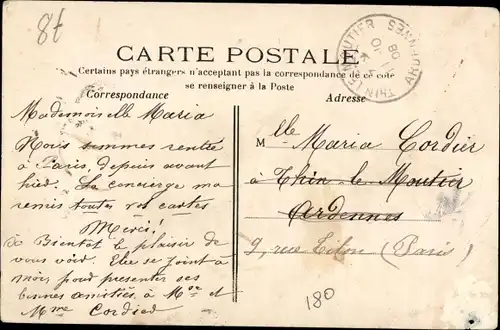 8t
THIN LE MOUTIER
ARDENNES
CARTE POSTALE
Certains pays étrangers n'acceptent pas la correspondance de ce côté
se renseigner à la Poste
Correspondance
Adresse
Mademoiselle Maria
Nous sommes rentrés
à Paris, depuis avant
hier. La concierge m'a
remis toutes vos cartes
Merci!
à Bientôt le plaisir de
vous voir. Elise se joint à
moi, pour présenter ses
bonnes amitiés à Mr et
Mme Cordier
Mlle Maria Cordier
à Thin le Moutier
Ardennes
9, rue Titon (Paris)
180